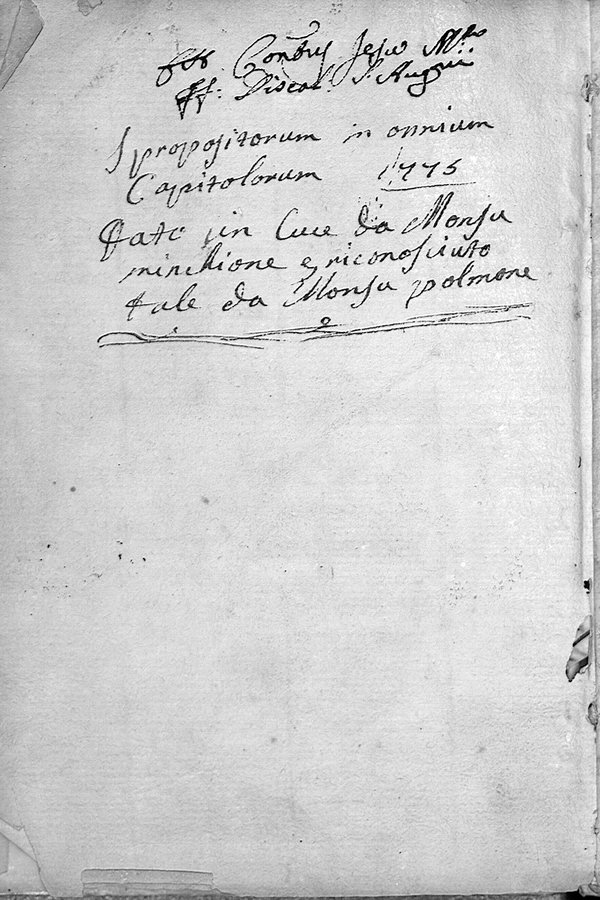 Conbus Jesu M.to
ff: Discal. S. Augui.
Spropositorum in omnium
Capitolorum 1775
Dato in luce da Monsu
minchione e riconosciuto
tale da Monsu polmone